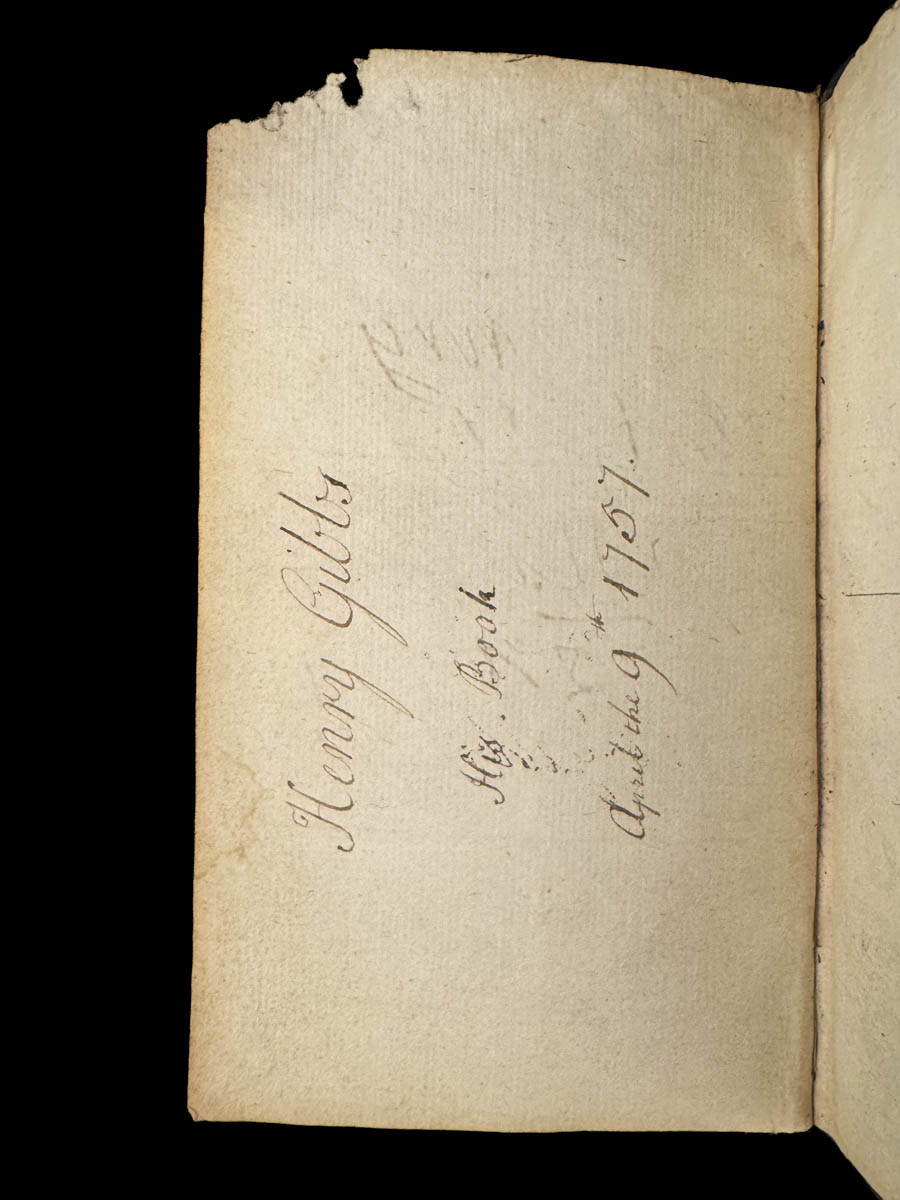 Henry Gibbs
His. Book
April the 9th 1757.